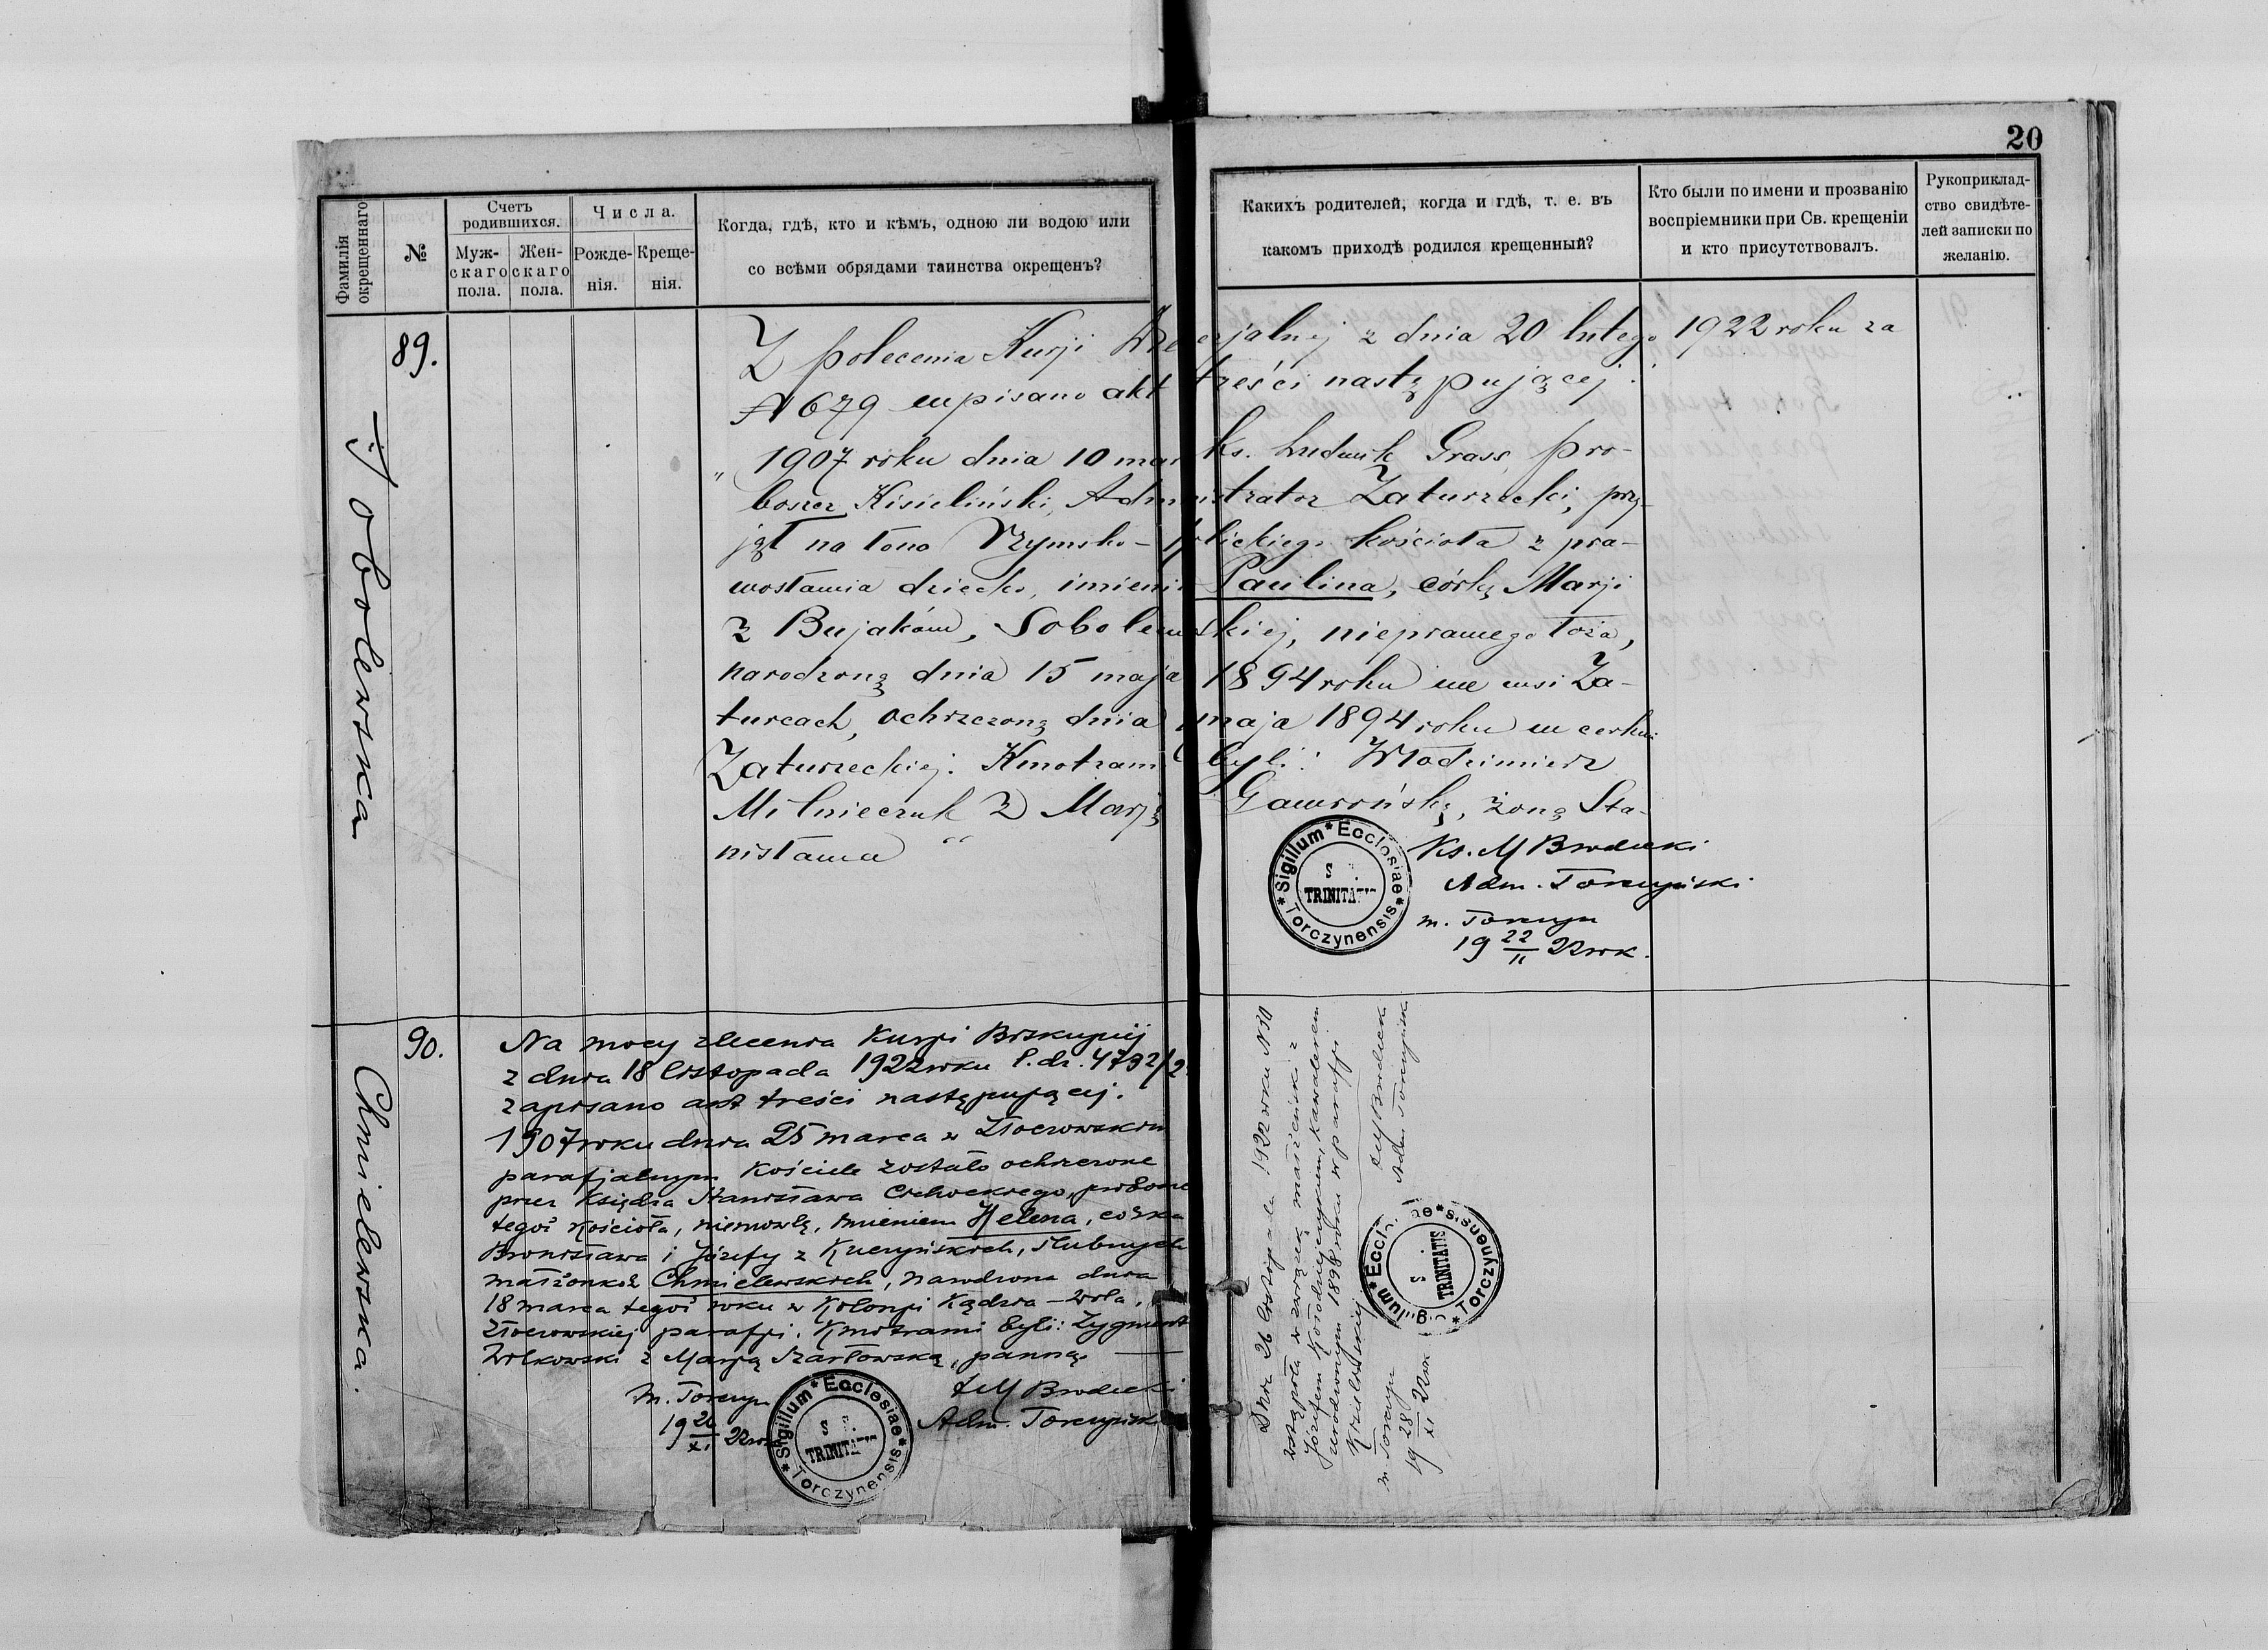 20
Фамилія окрещеннаго
№
Счетъ родившихся.
Мужскаго пола.
Женскаго пола.
Числа.
Рожденія.
Крещенія.
Когда, гдѣ, кто и кѣмъ, одною ли водою или
со всѣми обрядами таинства окрещенъ?
Какихъ родителей, когда и гдѣ, т. е. въ
какомъ приходѣ родился крещенный?
Кто были по имени и прозванію
воспріемники при Св. крещеніи
и кто присутствовалъ.
Рукоприклад-
ство свидѣте-
лей записки по
желанію.
89.
Sobolewska
Z polecenia Kurji Die cezjalnej z dnia 20 lutego 1922 roku za
N 679 wpisano akt treści następującej:
„1907 roku dnia 10 mar ks. Ludwik Grass, pro-
boszcz Kisieliński, Administrator Zaturzecki, przy-
jął na łono Rzymsko- lickiego kościoła z pra-
wosławia dziecko, imieni Paulina, córkę Marji
z Bujaków, Sobolewskiej, nieprawego łoża,
narodzoną dnia 15 maja 1894 roku we wsi Za-
turcach, ochrzczoną dnia maja 1894 roku w cerkwi
Zaturzeckiej. Kmotrami byli: Włodzimierz
Milnieczuk z Marją Gawrońską, żoną Sta-
nisława“
Ks. M Brodecki
Adm. Torczyński
m. Torczyn
19 22/II 22 rok.
*Sigillum*Ecclesiae*Torczynensis
S TRINITATIS
90.
Chmielewska.
Na mocy zlecenia Kurji Biskupiej
z dnia 18 listopada 1922 roku l.dz. 4732/2
zapisano akt treści następującej.
1907 roku dnia 25 marca w Złoczowskim
parafjalnym Kościele zostało ochrzczone
przez Księdza Stanisława proboszcz
tegoż Kościoła, niemowlę, imieniem Helena, córka
Bronisława i Józefy z Kuczyńskich, ślubnych
małżonków Chmielewskich, narodzona dnia
18 marca tegoż roku w Kolonji Kądzia-Wola,
Złoczowskiej parafji. Kmotrami byli: Zygmunt
Wilkowski z Marją Szarłowską, panną.
m. Torczyn
19 26/XI 22 rok
*Sigillum*Ecclesiae*Torczynensis
S TRINITATIS
M Brodecki
Adm. Torczyński
Dnia 26 listopada 1922 roku N30
wstąpiła w związek małżeński z
Józefem Kołodziejczykiem, kawalerem
urodzonym 1898 roku w parafji
M Brodecki
Adm. Torczyński
m. Torczyn
19 28/XI 22 rok
*Sigillum*Ecclesiae*Torczynensis
S TRINITATIS